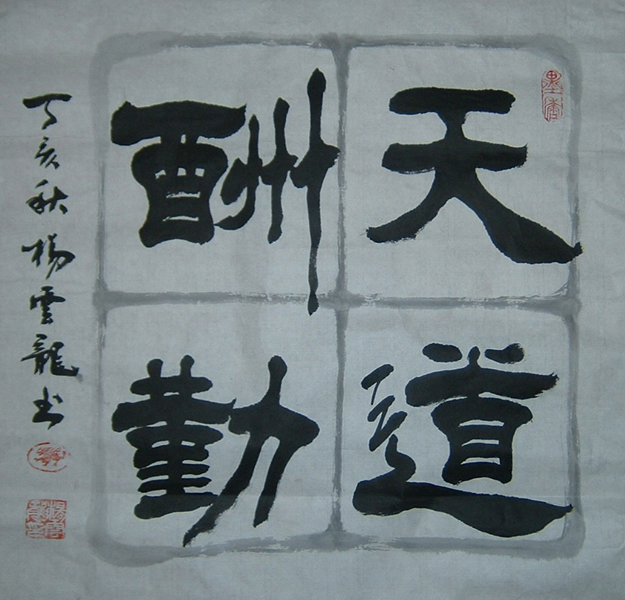 天道
酬勤
丁亥秋楊雲龍书